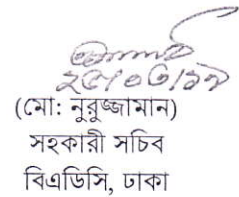 ২৫/০৩/১৯
(মো: নুরুজ্জামান)
সহকারী সচিব
বিএডিসি, ঢাকা